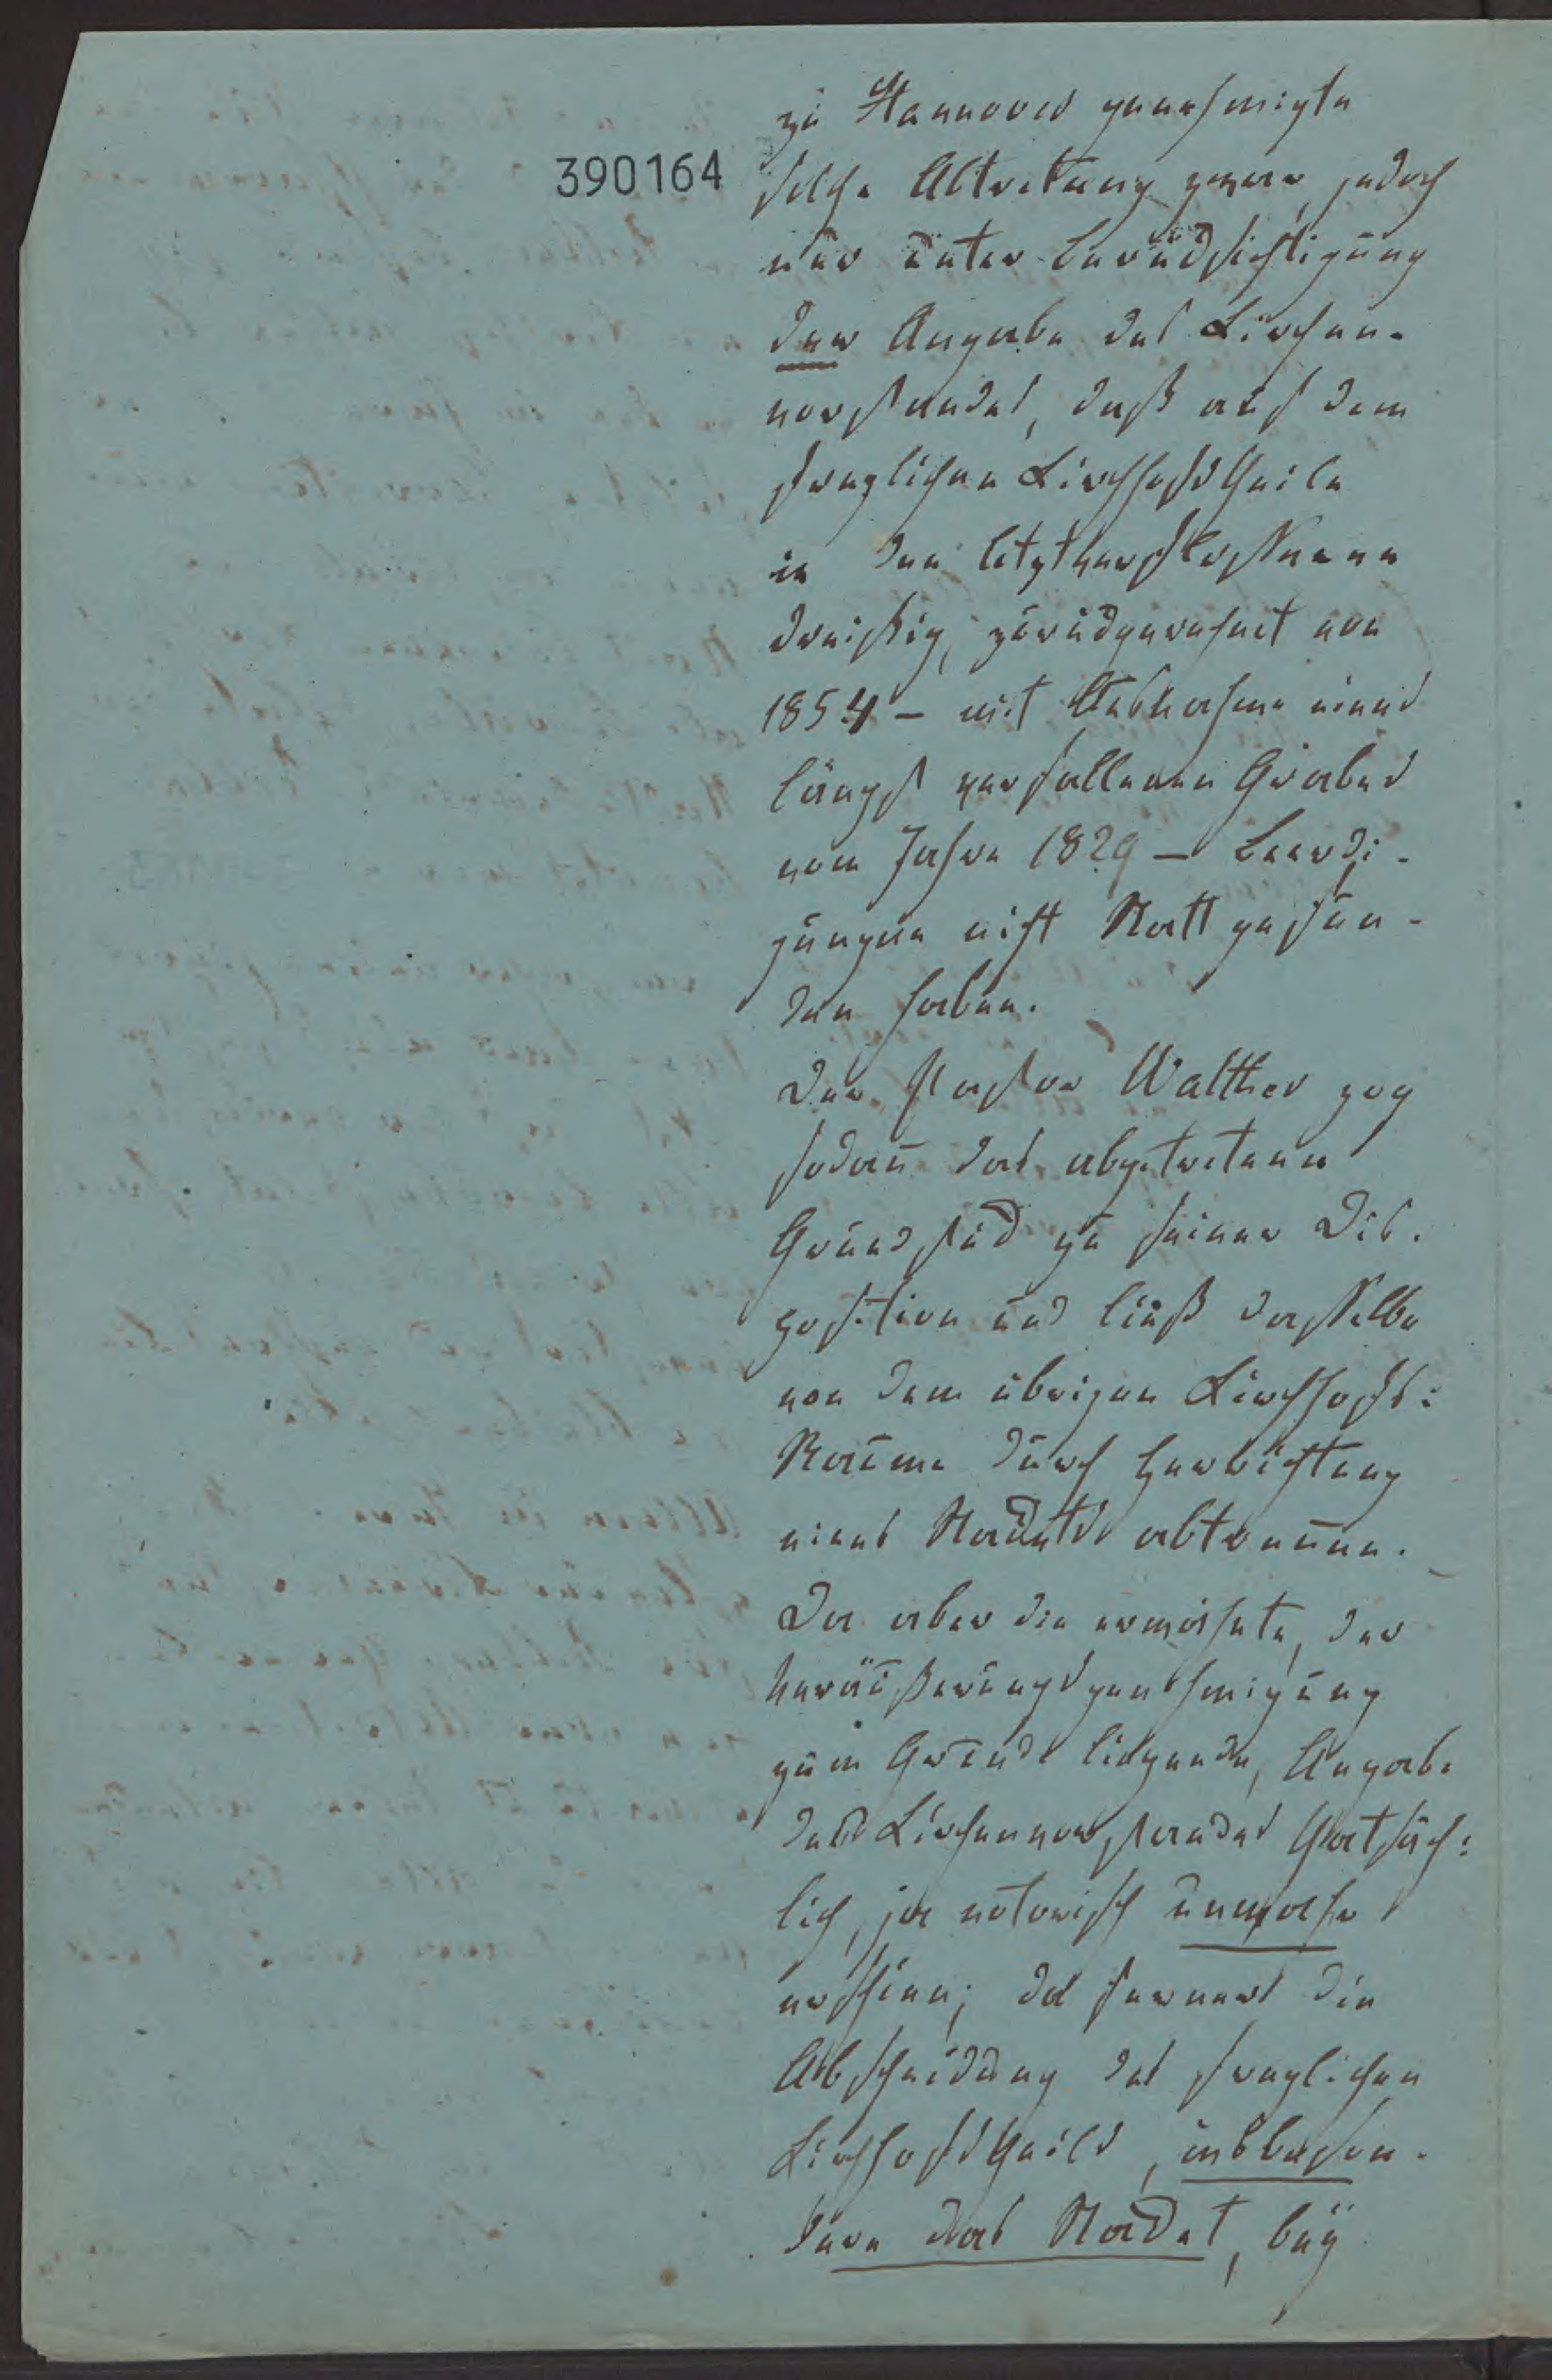 zu Hannover genehmigte
390164
solche Abtretung zwar, jedoch
nur unter Berücksichtigung
der Angabe des Kirchen-
vorstandes, daß auf dem
fraglichen Kirchhofstheile
in den letztverflossenen
dreißig, zurückgerechnet von
1854 – mit Ausnahme eines
längst verfallenen Grabes
vom Jahre 1829 – Beerdi-
gungen nicht Statt gefun-
den haben.
Der Pastor Walther zog
sodann das abgetretene
Grundstück zu seiner Dis-
position und ließ dasselbe
von dem übrigen Kirchhofs-
Raume durch Herrichtung
eines Stackets abtrennen.
Da aber die erwähnte, der
Veräußerungsgenehmigung
zum Grunde liegende, Angabe
des Kirchenvorstandes thatsäch-
lich, ja notorisch unwahr
erschien; da ferner die
Abscheidung des fraglichen
Kirchhofstheils, insbeson-
dere das Stacket, bey